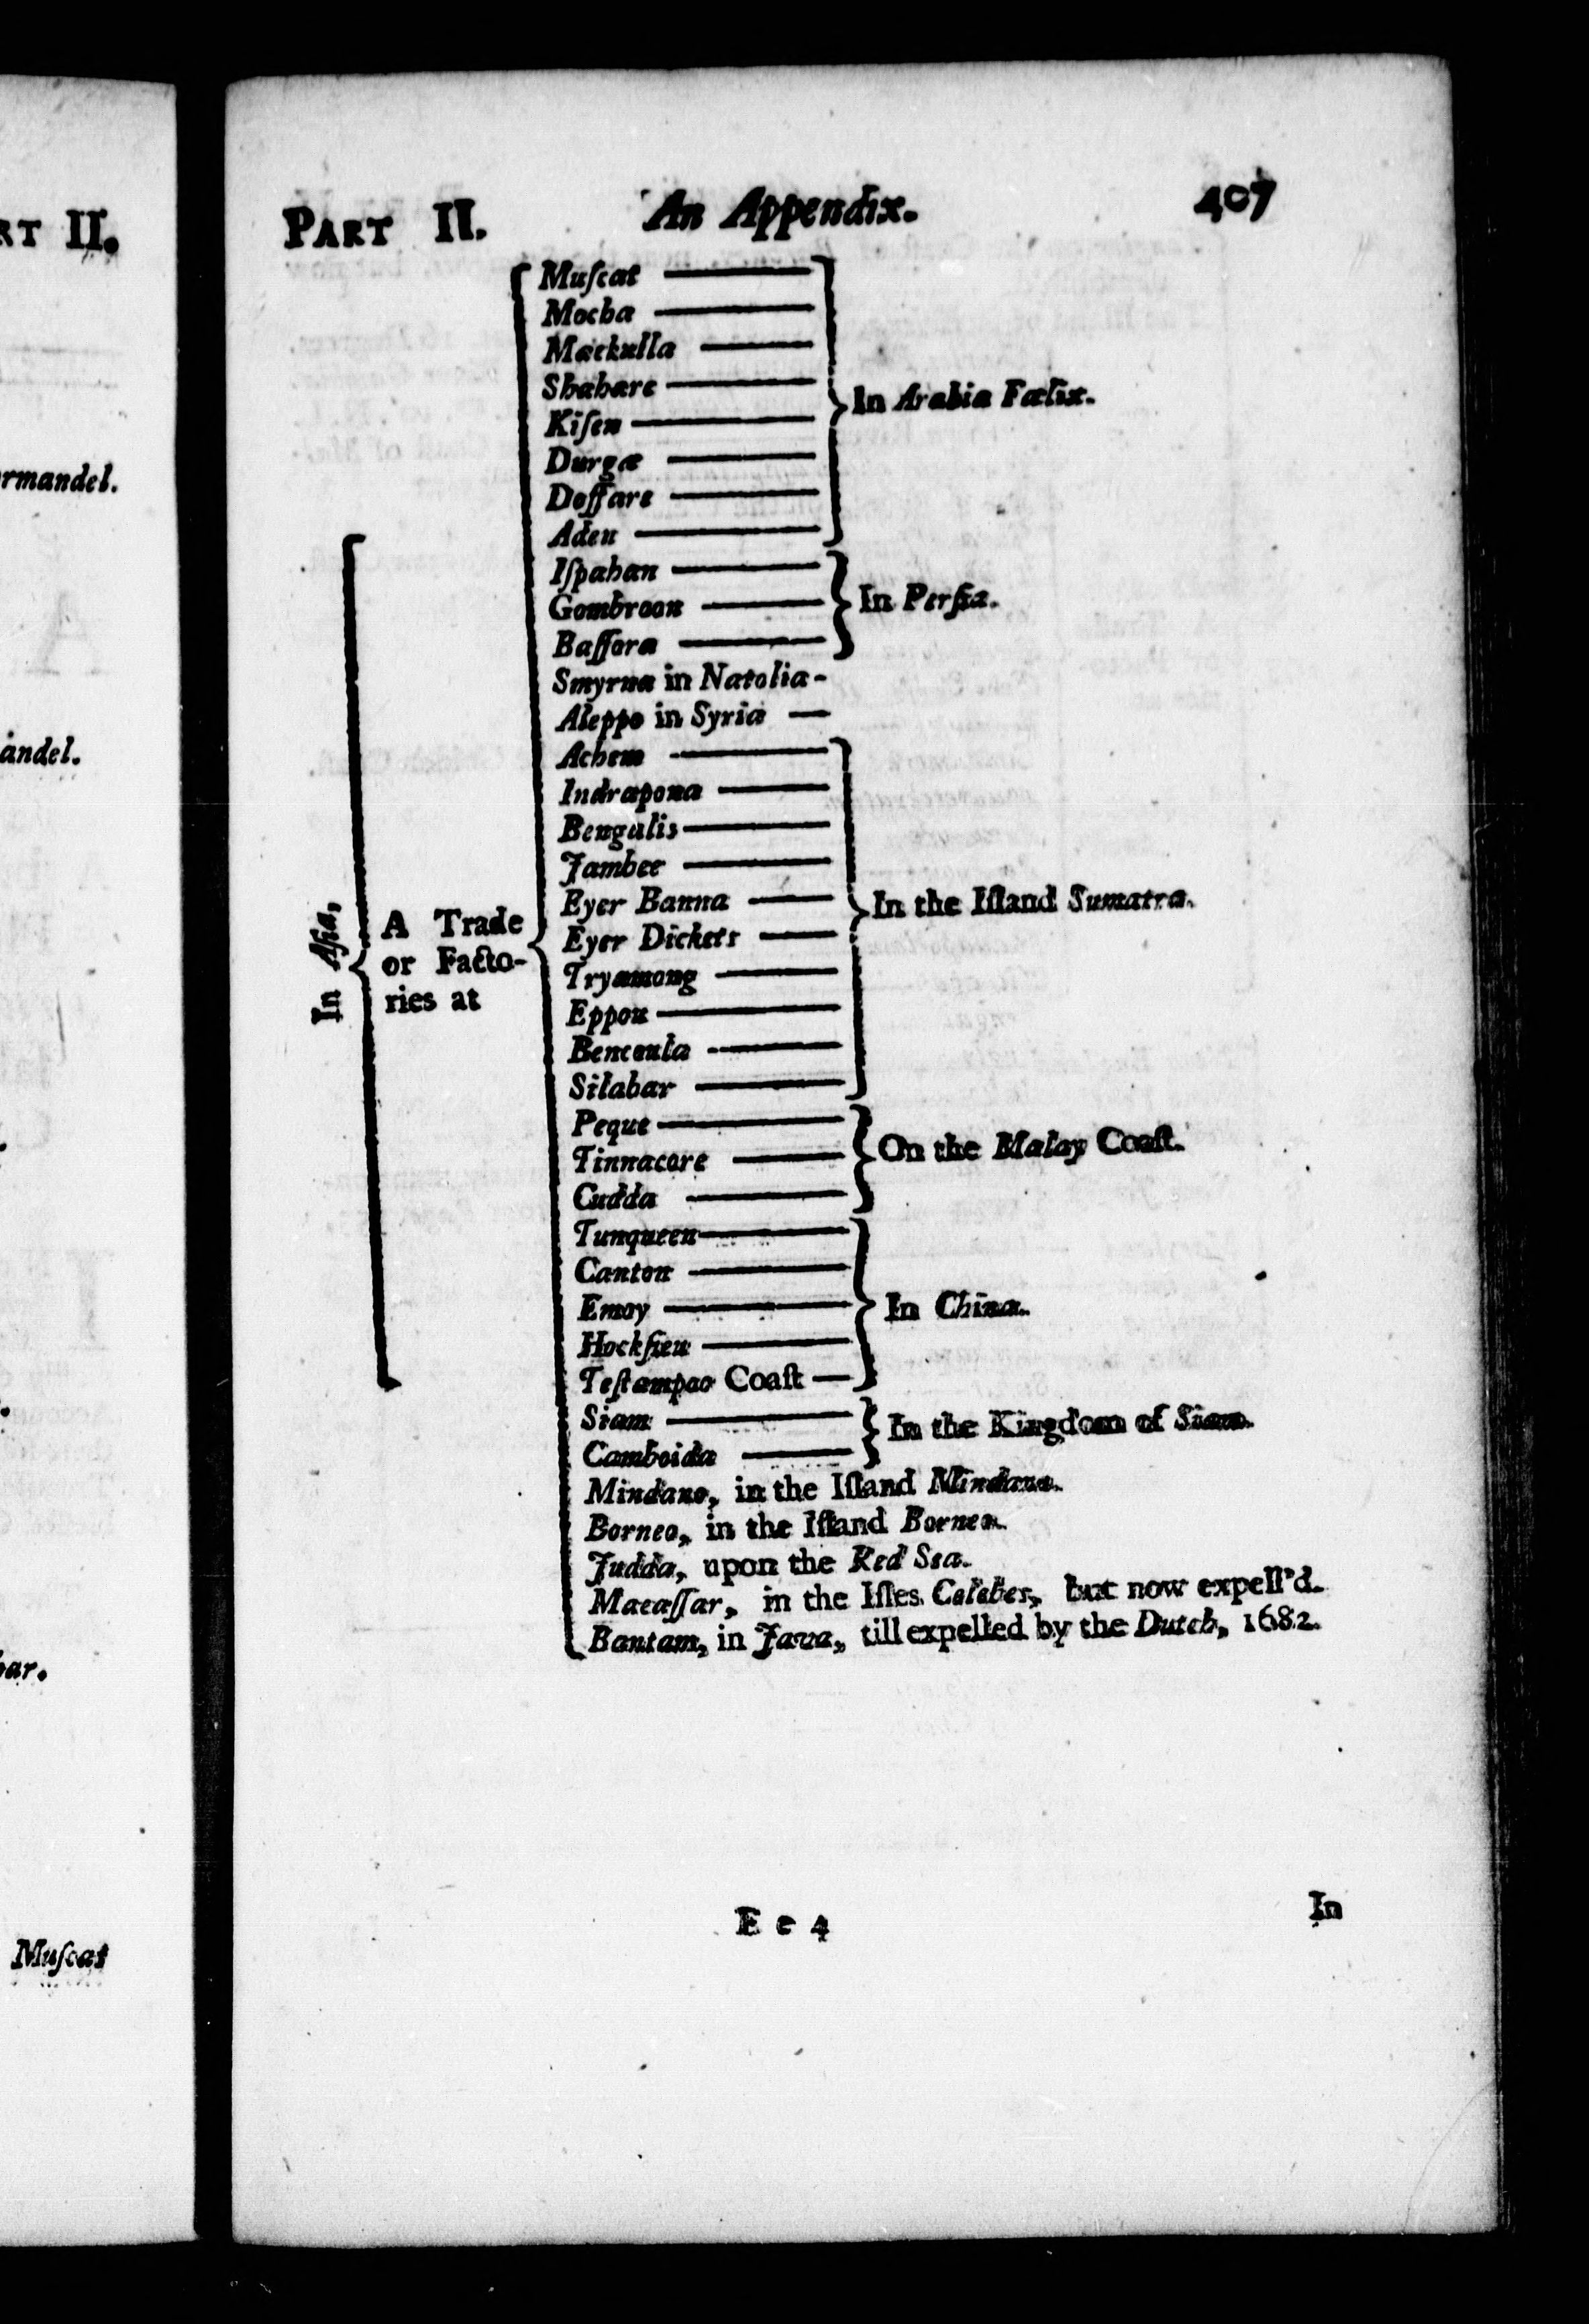 RT II.
rmandel.
andel.
bar.
Muſcat
PART II. An Appendix. 407
Muſcat
Mocha
Mackulla
Shahare
Kiſen
Durgæ
Doffare
Aden
In Arabia Fœlix.
Iſpahan
Gombroon
Baſſora
In Perſia.
Smyrna in Natolia-
Aleppo in Syria —
Achem
Indrapona
Bengalis
Jambee
Eyer Banna
Eyer Dickets
Tryamong
Eppon
Bencoula
Silabar
In the Iſland Sumatra.
Peque
Tinnacore
Cudda
On the Malay Coaſt.
Tunqueen
Canton
Emoy
Hockſieu
Teſtampao Coaſt —
In China.
Siam
Camboida
In the Kingdom of Siam.
Mindano, in the Iſland Mindano.
Borneo, in the Iſland Borneo.
Judda, upon the Red Sea.
Macaſſar, in the Iſles Celebes, but now expell'd.
Bantam, in Java, till expelled by the Dutch, 1682.
In Aſia,
A Trade
or Facto-
ries at
E e 4
In